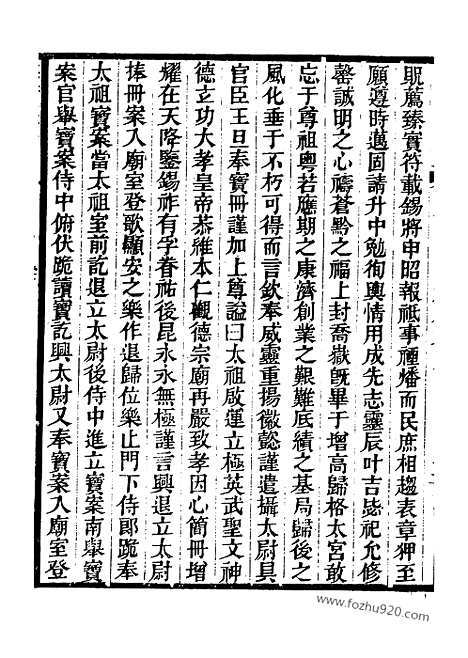 貺薦臻寶符載錫將申昭報祗事禋燔而民庶相趨表章狎至
願遵時邁固請升中勉徇輿情用成先志靈辰叶吉毖祀允修
罄誠明之心禱蒼黔之福上封喬嶽旣畢于增高歸格太宮敢
忘于尊祖粤若應期之康濟創業之艱難底績之基局歸後之
風化垂于不朽可得而言欽奉威靈重揚徽懿謹遣攝太尉具
官臣王旦奉寶冊謹加上尊謚曰太祖啟運立極英武聖文神
德立功大孝皇帝恭維本仁觀德宗廟再嚴致孝因心簡冊增
耀在天降鑒錫祚有孚眷祐後昆永永無極謹言興退立太尉
捧冊案入廟室登歌顯安之樂作退歸位樂止門下侍郎跪奉
太祖寶案當太祖室前訖退立太尉後侍中進立寶案南舉寶
案官舉寶案侍中俯伏跪讀寶訖興太尉又奉寶案入廟室登
www.fozhu920.com